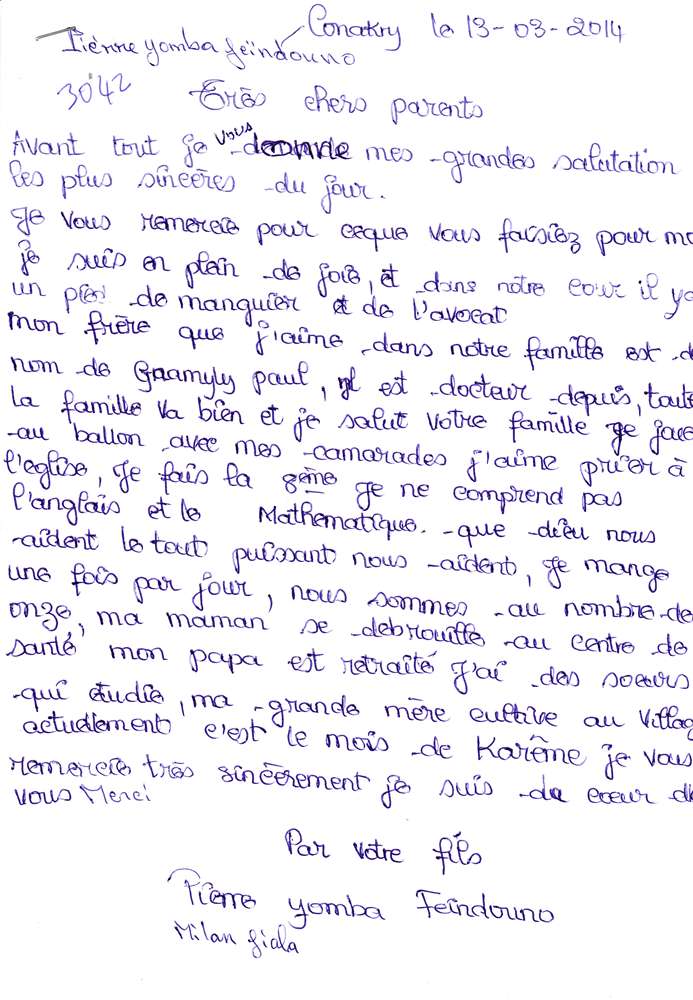 Conakry le 13-03-2014
Pièrre yomba feindouno
3042 Très chers parents
Avant tout je vous demande mes grandes salutation
les plus sincères du jour.
Je vous remercie pour ceque vous faisiez pour mo
je suis en plein de joie, et dans notre cour il ya
un pied de manguier et de l'avocat
mon frère que j'aime dans notre famille est d
nom de Gnamyly paul, il est docteur depuis, toute
la famille va bien et je salut votre famille je joue
au ballon avec mes camarades j'aime prier à
l'eglise, Je fais la 8ème Je ne comprend pas
l'anglais et le Mathematique. que dieu nous
aident le tout puissant nous aident, Je mange
une fois par jour, nous sommes au nombre de
onze, ma maman se debrouille au centre de
santé mon papa est retraité J'ai des soeurs
qui étudie, ma grande mère cultive au villag
actuellement c'est le mois de Karême je vous
remercie très sincèrement je suis du coeur d
vous Merci
Par votre fils
Pierre yomba Feindouno
Milan fiala